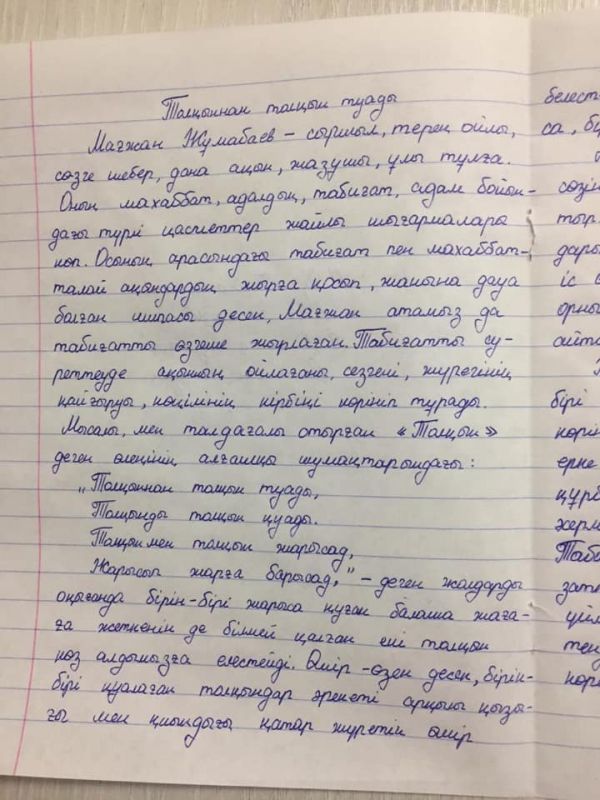 Толқыннан толқын туады
Мағжан Жұмабаев - сыршыл, терең ойлы,
сөзге шебер, дана ақын, жазушы, ұлы тұлға.
Оның махаббат, адалдық, табиғат, адам бойын-
дағы түрлі қасиеттер жайлы шығармалары
көп. Осының арасындағы табиғат пен махаббат-
талай ақындардың жырға қосып, жанына дауа
болған шипасы десек, Мағжан атамыз да
табиғатты өзгеше жырлаған. Табиғатты су-
реттеуде ақынның ойлағаны, сезгені, жүрегінің
қайғыруы, көңілінің кірбіңі көрініп тұрады.
Мысалы, мен талдағалы отырған «Толқын»
деген өлеңінің алғашқы шумақтарындағы:
"Толқыннан толқын туады,
Толқынды толқын қуады.
Толқын мен толқын жарысад,
Жарысып жарға барысад," - деген жолдарды
оқығанда бірін-бірі жарыса қуған балаша жаға-
ға жеткенін де білмей қалған екі толқын
көз алдымызға елестейді. Өмір - өзен десек, бірін-
бірі қуалаған толқындар әрекеті арқылы қызы-
ғы мен қиындығы қатар жүретін өмір
белест
са, бұ
сөзін
тыр.
дары
іс
орны
айта
бірі
көрін
ерке
құрб
жерл
Таби
зат
үйл
тең
көр